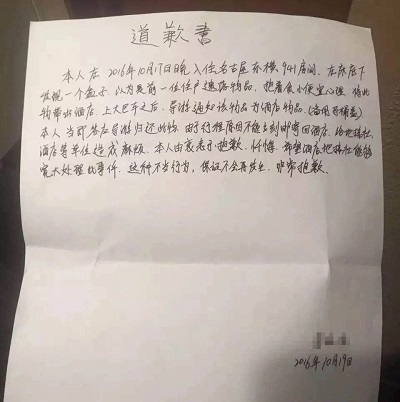 道歉書
本人在2016年10月17日晚入住名古屋东横941房间、在床底下
发现一个盒子 以为是前一位住户遗落物品、抱着贪小便宜心理 将此
物带出酒店、上大巴车之后、导游通知该物品为酒店物品、(备用马桶盖)
本人当即答应导游归还此物、由于行程原因不能立刻邮寄回酒店、给地接社、
酒店等单位造成麻烦、本人由衷表示抱歉、忏悔、希望酒店地接社能够
宽大处理此事件、这种不当行为、保证不会再发生、非常抱歉、
2016年10月19日